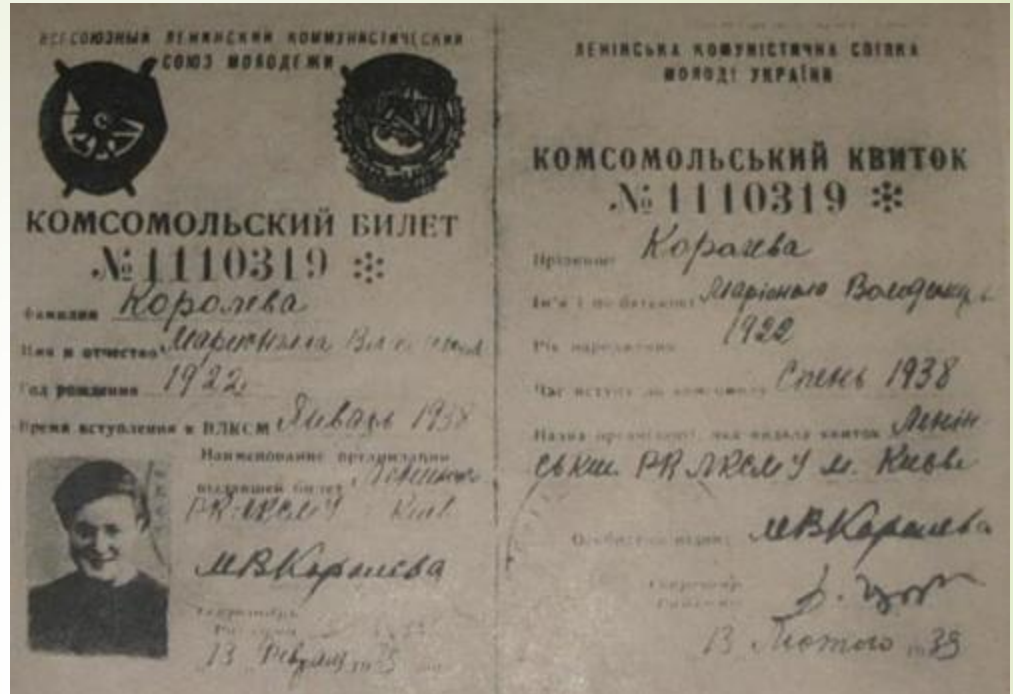 ВСЕСОЮЗНЫЙ ЛЕНИНСКИЙ КОММУНИСТИЧЕСКИЙ
СОЮЗ МОЛОДЕЖИ
КОМСОМОЛЬСКИЙ БИЛЕТ
№ 1110319
Фамилия Королева
Имя и отчество
Год рождения 1922
Время вступления в ВЛКСМ Январь 1938
Наименование организации
выдавшей билет
РК ЛКСМУ Киев
МВКоролева
13 февраля
ЛЕНІНСЬКА КОМУНІСТИЧНА СПІЛКА
МОЛОДІ УКРАЇНИ
КОМСОМОЛЬСЬКИЙ КВИТОК
№ 1110319
Прізвище Королева
Ім'я і по батькові
Рік народження 1922
Час вступу до комсомолу Січень 1938
Назва організації, яка видала квиток Ленін
ський РК ЛКСМУ м. Києва
Особистий підпис МВКоролева
Секретар
13 Лютого 1939